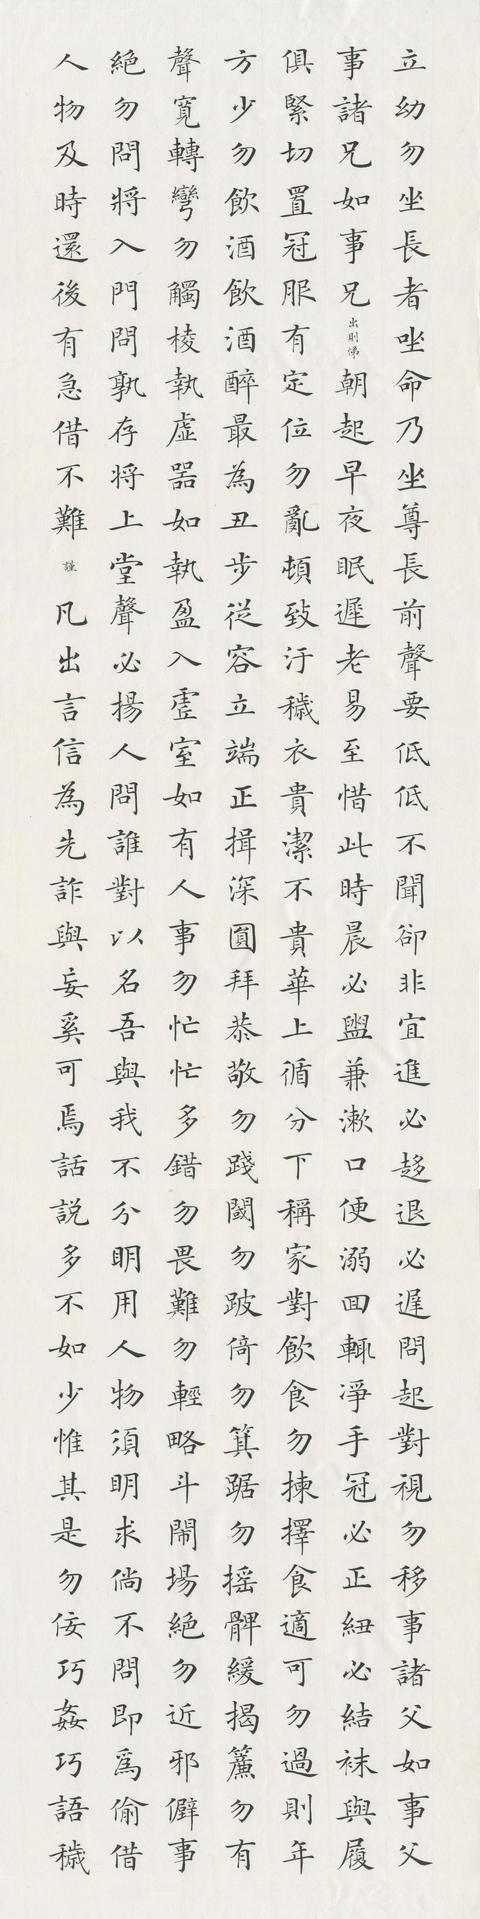 立幼勿坐長者坐命乃坐尊長前聲要低低不聞卻非宜進必趍退必遲問起對視勿移事諸父如事父
事諸兄如事兄出則悌朝起早夜眠遲老易至惜此時晨必盥兼漱口便溺回輒淨手冠必正紐必結袜與履
俱緊切置冠服有定位勿亂頓致汙穢衣貴潔不貴華上循分下稱家對飲食勿揀擇食適可勿過則年
方少勿飲酒飲酒醉最為丑步從容立端正揖深圓拜恭敬勿踐閾勿跛倚勿箕踞勿搖髀緩揭簾勿有
聲寬轉彎勿觸棱執虛器如執盈入虛室如有人事勿忙忙多錯勿畏難勿輕略斗鬧場絕勿近邪僻事
絕勿問將入門問孰存將上堂聲必揚人問誰對以名吾與我不分明用人物須明求倘不問即為偷借
人物及時還後有急借不難謹凡出言信為先詐與妄奚可焉話說多不如少惟其是勿佞巧姦巧語穢